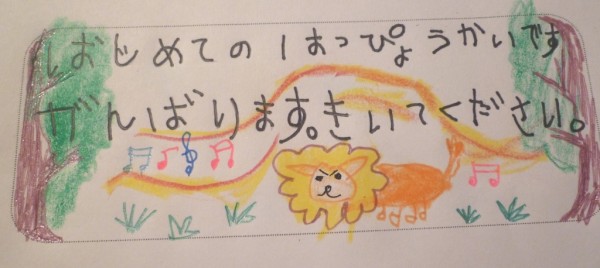 はじめての はっぴょうかいです
がんばります。きいてください。